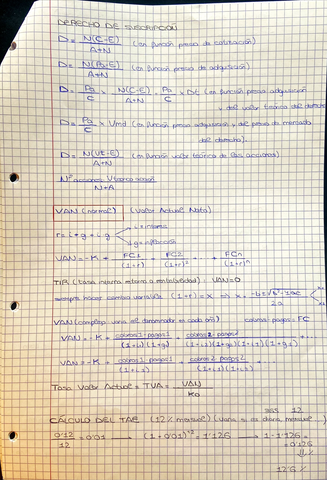 DERECHO DE SUSCRIPCIÓN
D = N(C-E) / A+N (en función precio de cotización)
D = N(Pa-E) / A+N (en función precio de adquisición)
D = Pa/C × N(C-E) / A+N = Pa/C × Dt (en función precio adquisición
y del valor teórico del derecho
D = Pa/C × Vmd (en función precio adquisición y del precio de mercado
del derecho).
D = N(Vt-E) / A+N (en función valor teórico de las acciones)
Nº acciones / N+A
VAN (normal) (Valor Actual Neto)
r = i+g+i·g i = interés
g = inflación
VAN = -K + FC1/(1+r) + FC2/(1+r)² + ... + FCn/(1+r)ⁿ
TIR (tasa interna retorno o rentabilidad): VAN=0
siempre hacer cambio variable (1+r) = x => x = -b±√b²-4ac / 2a
VAN (complejo, varía el denominador en cada año) cobros-pagos = FC
VAN = -K + cobros1-pagos1 / (1+i1)(1+g1) + cobros2-pagos2 / (1+i1)(1+g1)(1+i2)(1+g2) ...
VAN = -K + cobros1-pagos1 / (1+i1) + cobros2-pagos2 / (1+i1)(1+i2) ...
Tasa Valor Actual = TVA = VAN / K0
365 12
CÁLCULO DEL TAE (12% mensual) (Varía si es diaria, mensual...)
0'12 / 12 = 0'01 (1+0'01)¹² = 1'126 1-1'126 =
= 0'126
12'6 %